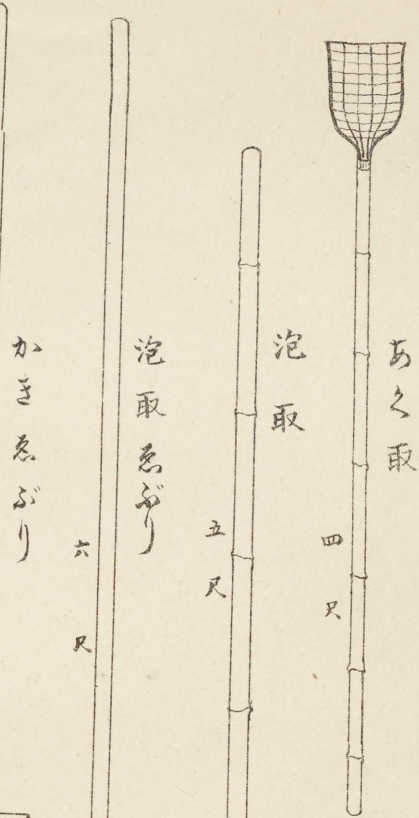 あく取
四尺
泡取
五尺
泡取ゑぶり
六尺
かきゑぶり